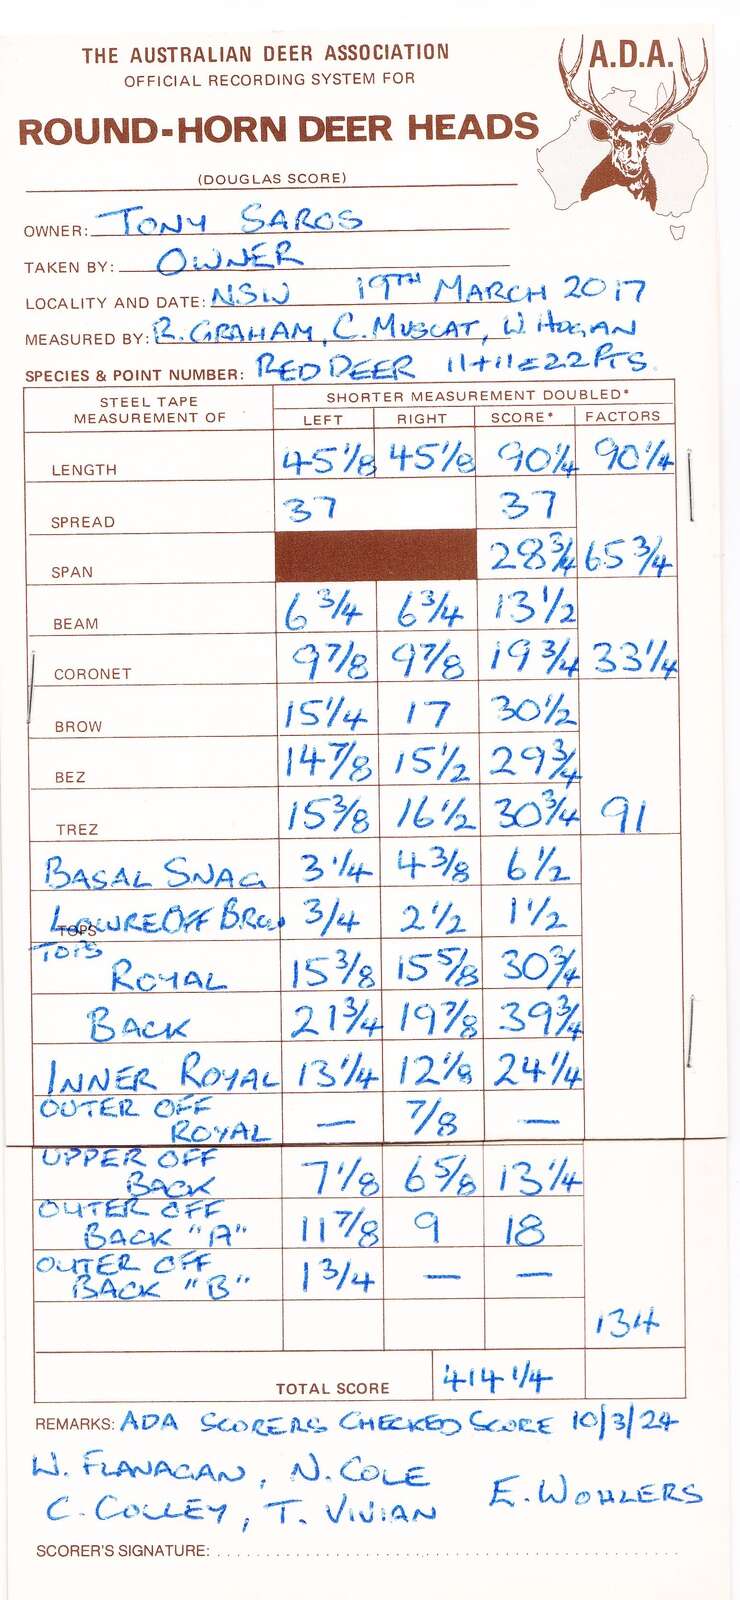 THE AUSTRALIAN DEER ASSOCIATION
OFFICIAL RECORDING SYSTEM FOR
A.D.A.
ROUND-HORN DEER HEADS
(DOUGLAS SCORE)
OWNER: TONY SAROS
TAKEN BY: OWNER
LOCALITY AND DATE: NSW 19TH MARCH 2017
MEASURED BY: R. GRAHAM, C. MUSCAT, W. HOGAN
SPECIES & POINT NUMBER: RED DEER 11+11=22 PTS.
STEEL TAPE MEASUREMENT OF SHORTER MEASUREMENT DOUBLED*
LEFT RIGHT SCORE* FACTORS
LENGTH 45 1/8 45 1/8 90 1/4 90 1/4
SPREAD 37 37
SPAN 28 3/4 65 3/4
BEAM 6 3/4 6 3/4 13 1/2
CORONET 9 7/8 9 7/8 19 3/4 33 1/4
BROW 15 1/4 17 30 1/2
BEZ 14 7/8 15 1/2 29 3/4
TREZ 15 3/8 16 1/2 30 3/4 91
BASAL SNAG 3 1/4 4 3/8 6 1/2
LOWRE OFF BROW 3/4 2 1/2 1 1/2
TOPS
TOPS
ROYAL 15 3/8 15 5/8 30 3/4
BACK 21 3/4 19 7/8 39 3/4
INNER ROYAL 13 1/4 12 1/8 24 1/4
OUTER OFF
ROYAL — 7/8 —
UPPER OFF
BACK 7 1/8 6 5/8 13 1/4
OUTER OFF
BACK "A" 11 7/8 9 18
OUTER OFF
BACK "B" 1 3/4 — —
134
TOTAL SCORE 414 1/4
REMARKS: ADA SCORERS CHECKED SCORE 10/3/24
W. FLANAGAN, N. COLE
E. WOHLERS
C. COLLEY, T. VIVIAN
SCORER'S SIGNATURE: